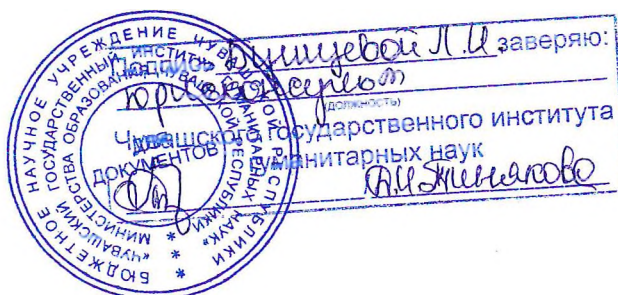 Подпись Бушуевой Л.И. заверяю:
юрисконсульт
(должность)
Чувашского государственного института
гуманитарных наук
БЮДЖЕТНОЕ НАУЧНОЕ УЧРЕЖДЕНИЕ ЧУВАШСКОЙ РЕСПУБЛИКИ
«ЧУВАШСКИЙ ГОСУДАРСТВЕННЫЙ ИНСТИТУТ ГУМАНИТАРНЫХ НАУК»
МИНИСТЕРСТВА ОБРАЗОВАНИЯ ЧУВАШСКОЙ РЕСПУБЛИКИ
ДЛЯ
ДОКУМЕНТОВ